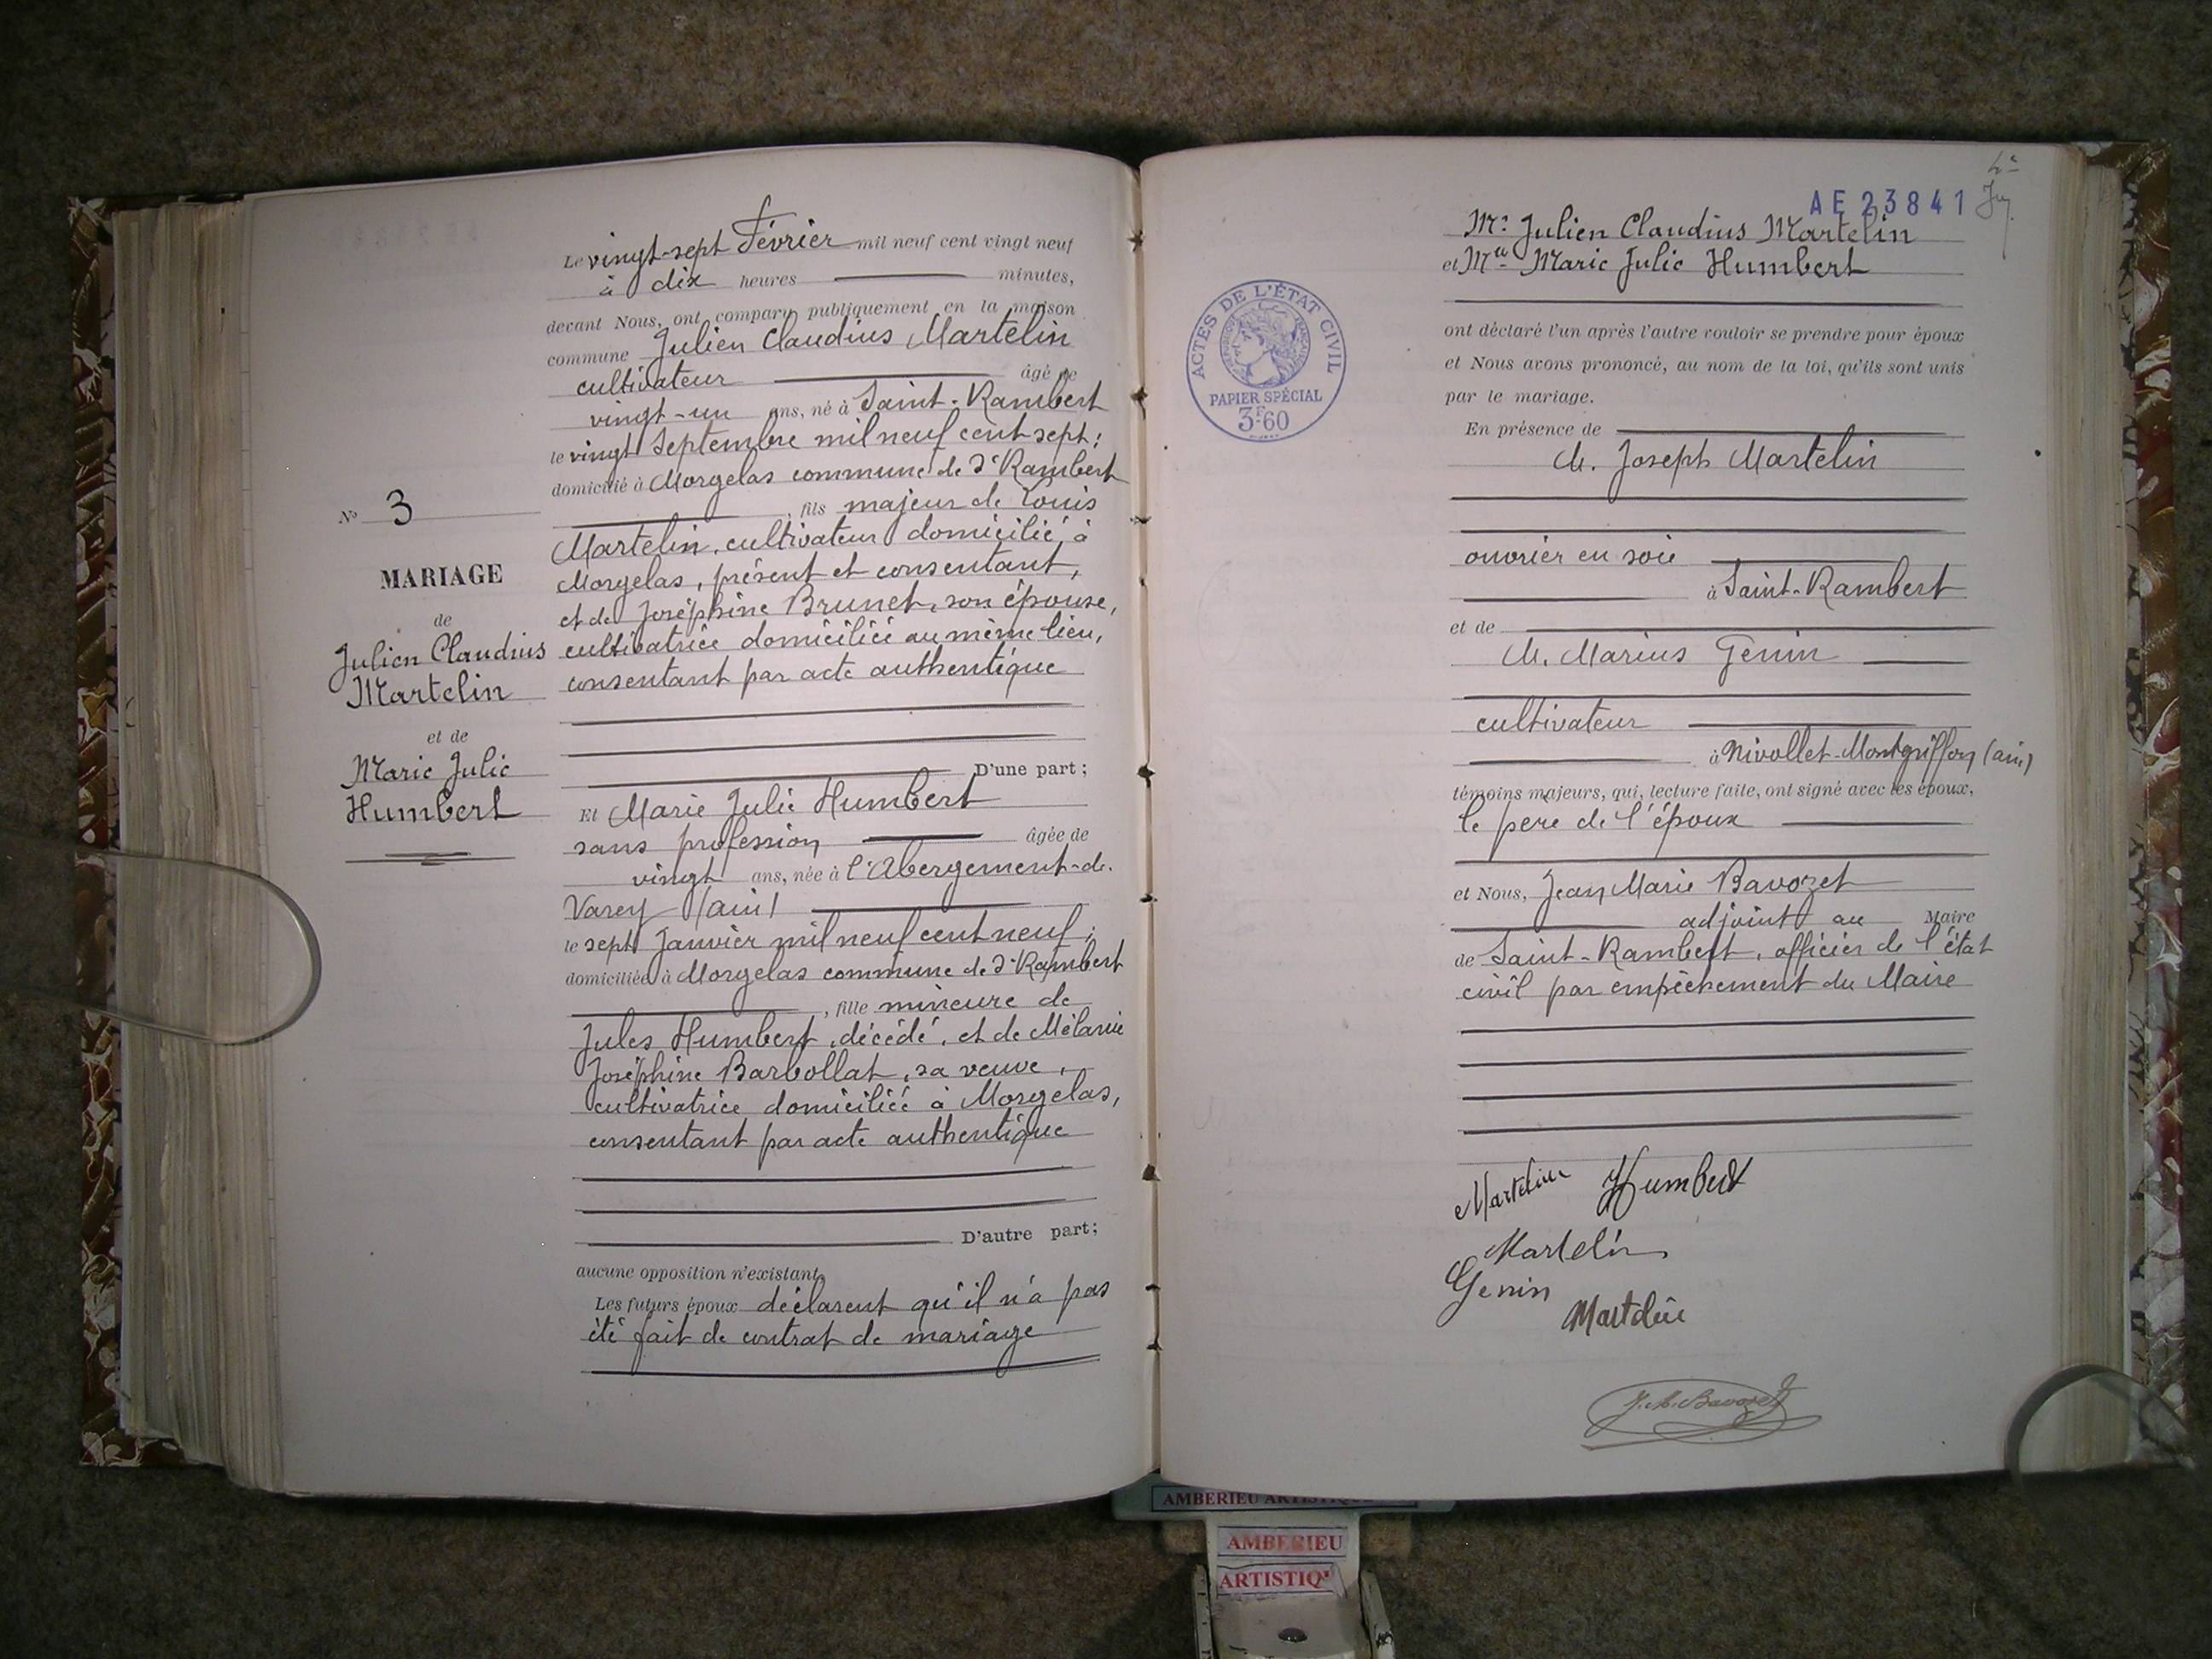 Le vingt-sept Février mil neuf cent vingt neuf
à dix heures minutes,
devant Nous, ont comparu publiquement en la maison
commune Julien Claudius Martelin
cultivateur âgé de
vingt-un ans, né à Saint-Rambert
le vingt Septembre mil neuf cent sept;
domicilié à Morgelas commune de St Rambert
, fils majeur de Louis
Martelin, cultivateur domicilié à
Morgelas, présent et consentant,
et de Joséphine Brunet, son épouse,
cultivatrice domiciliée au même lieu,
consentant par acte authentique
D'une part;
Et Marie Julie Humbert
sans profession âgée de
vingt ans, née à l'Abergement-de-
Varey (ain)
le sept Janvier mil neuf cent neuf;
domiciliée à Morgelas commune de St Rambert
, fille mineure de
Jules Humbert, décédé, et de Mélanie
Joséphine Barbollat, sa veuve,
cultivatrice domiciliée à Morgelas,
consentant par acte authentique
D'autre part;
aucune opposition n'existant,
Les futurs époux déclarent qu'il n'a pas
été fait de contrat de mariage
No 3
MARIAGE
de
Julien Claudius
Martelin
et de
Marie Julie
Humbert
AE 23841
Mr Julien Claudius Martelin
et Mlle Marie Julie Humbert
ont déclaré l'un après l'autre vouloir se prendre pour époux
et Nous avons prononcé, au nom de la loi, qu'ils sont unis
par le mariage.
En présence de
M. Joseph Martelin
ouvrier en soie
à Saint-Rambert
et de
M. Marius Genin
cultivateur
à Nivollet-Montgriffon (ain)
témoins majeurs, qui, lecture faite, ont signé avec les époux,
le père de l'époux
et Nous, Jean Marie Bavozet
adjoint au Maire
de Saint-Rambert, officier de l'état
civil par empêchement du Maire
Martelin Humbert
Martelin
Genin
Martelin
J. M. Bavozet
ACTES DE L'ÉTAT CIVIL
RÉPUBLIQUE FRANÇAISE
PAPIER SPÉCIAL
3F60
AMBERIEU ARTISTIQUE
AMBERIEU
ARTISTIQ